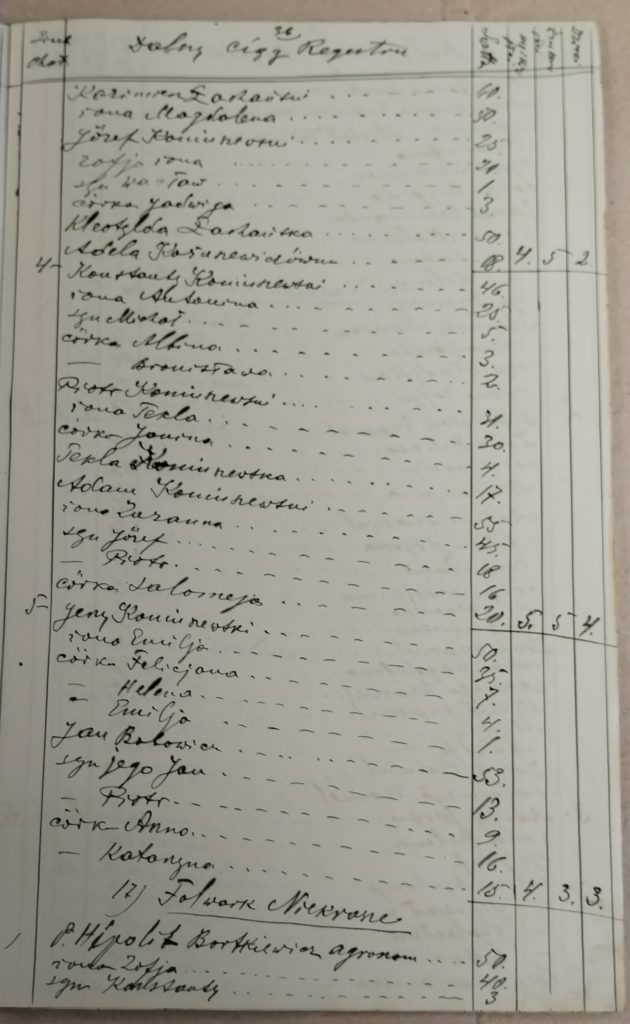 26
Dalszy ciąg Regestru
Kazimierz Zachański 60.
żona Magdalena 50.
Józef Komuniewski 25
Zofja żona 20
syn Wacław 1.
córka Jadwiga 3.
Kleotylda Zachańska 50
Adela 18. 4. 5 2.
4- Konstanty Komuniewski 46.
żona Antonina 25
syn Michał 5.
córka Albina 3.
— Bronisława 2.
Piotr Komuniewski
żona Tekla 30.
córka Janina 4.
Tekla Komuniewska 17.
Adam Komuniewski 55
żona Zuzanna 45.
syn Józef 18
— Piotr 16
córka Salomeja 20. 5. 5 4.
5- Jerzy Komuniewski 50.
żona Emilja
córka Felicjana 7.
— Helena 4.
— Emilja 1.
Jan 53.
syn jego Jan 13.
— Piotr 9.
córk Anna 16.
— Katarzyna 15. 4. 3. 3.
17) Folwark
P. Hipolit Bortkiewicz agronom 50.
żona Zofja 40.
syn Konstanty 3